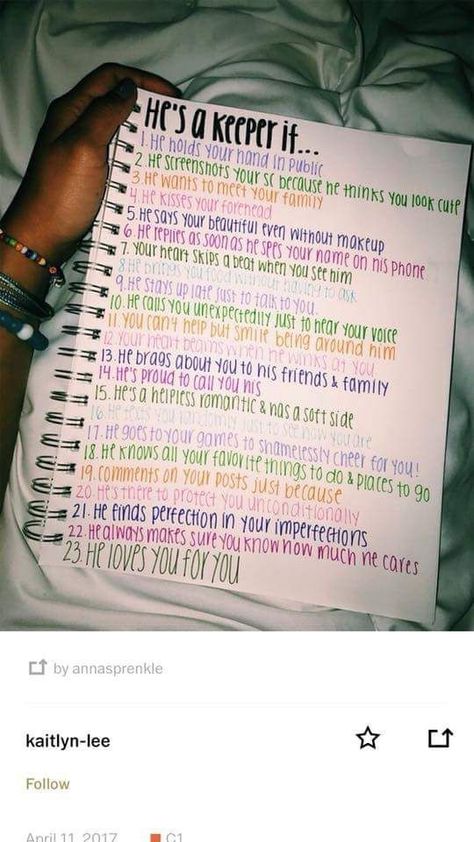 He's a keeper if...
1. He holds your hand in public
2. He screenshots your sc because he thinks you look cute
3. He wants to meet your family
4. He kisses your forehead
5. He says your beautiful even without makeup
6. He replies as soon as he sees your name on his phone
7. Your heart skips a beat when you see him
8. He brings you food without having to ask
9. He stays up late just to talk to you.
10. He calls you unexpectedly just to hear your voice
11. You can't help but smile being around him
12. Your heart beams when he winks at you.
13. He brags about you to his friends & family
14. He's proud to call you his
15. He's a helpless romantic & has a soft side
16. He texts you randomly just to see how you are
17. He goes to your games to shamelessly cheer for you!
18. He knows all your favorite things to do & places to go
19. Comments on your posts just because
20. He's there to protect you unconditionally
21. He finds perfection in your imperfections
22. He always makes sure you know how much he cares
23. He loves you for you
by annasprenkle
kaitlyn-lee
Follow
April 11, 2017 C1